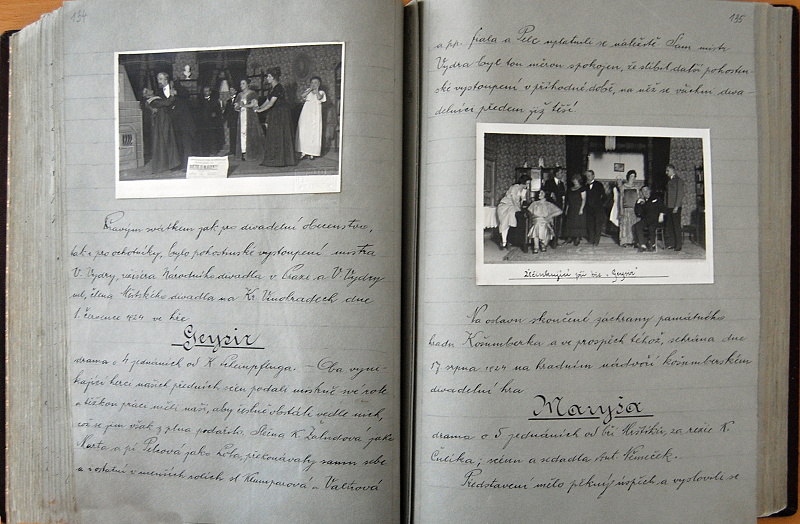 134
Pravým svátkem jak pro divadelní obecenstvo,
tak i pro ochotníky, bylo pohostinské vystoupení mistra
V. Vydry, režiséra Národního divadla v Praze a V. Vydry
ml., člena Městského divadla na Kr. Vinohradech dne
1. července 1924 ve hře
Geysir
drama o 4 jednáních od K. Scheinpfluga. – Oba vyni-
kající herci našich předních scén podali mistrně své role
a těžkou práci měli naši, aby čestně obstáli vedle nich,
což se jim však z plna podařilo. Slečna K. Žaludová jako
Marta, a pí Pelcová jako Lóta, překonávaly samy sebe
a ostatní v menších rolích sl. Klenuparová – Valtrová
135
a pp. Fiala a Pelc uplatnili se náležitě. Sám mistr
Vydra byl tou měrou spokojen, že slíbil další pohostin-
ské vystoupení v příhodné době, na něž se všichni diva-
delníci předem již těší.
Účinkující při hře „Geysir"
Na oslavu skončení záchrany památného
hradu Košumberka a ve prospěch téhož, sehrána dne
17. srpna 1924 na hradním nádvoří košumberském
divadelní hra
Maryša
drama o 5 jednáních od bří Mrštíků, za režie K.
Culíka; scénu a sedadla Ant. Němeček.
Představení mělo pěkný úspěch, a vyslovili se